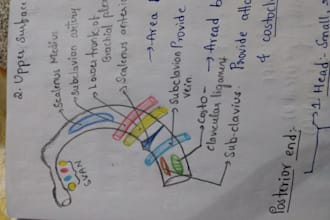 2. Upper Surface
Scalenus Medius
Subclavian artery
Lower trunk of
Brachial ple
Scalenus anterio
SVAN
→ Area
Subclavian Provide
vein.
→ Area b
Costo-
clavicular ligament
Provide atta
& costoch
Sub-clavius.
Posterior end:-
→ 1. Head:- Small